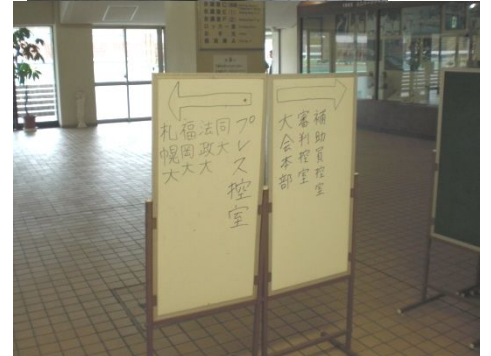 プレス控室
同大
法政大
福岡大
札幌大
補助員控室
審判控室
大会本部